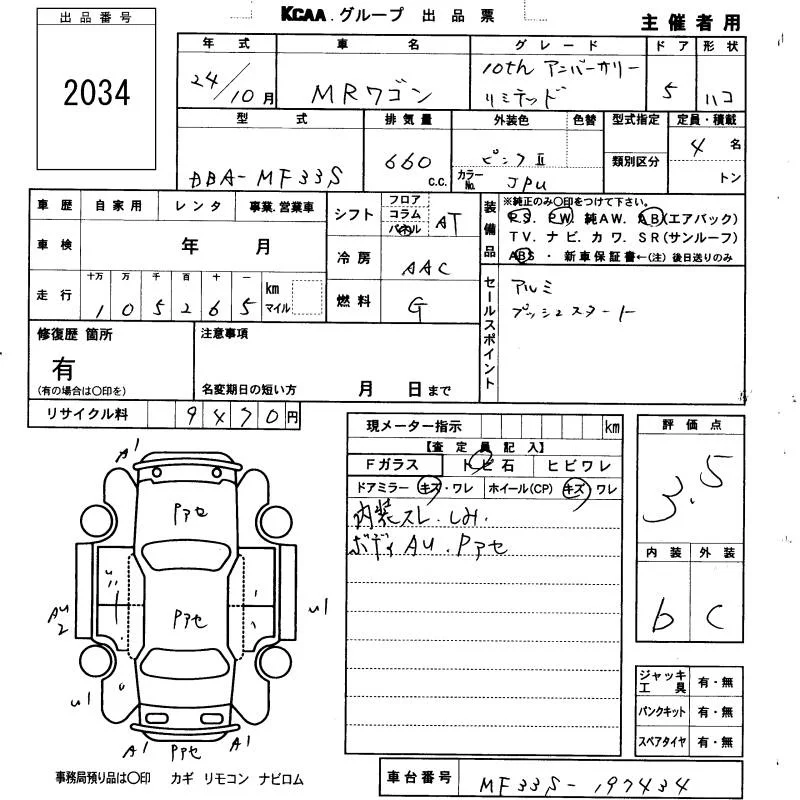 KCAA.グループ 出品票
主催者用
出品番号
2034
年式 車名 グレード ドア 形状
24/10月 MRワゴン 10thアニバーサリー リミテッド 5 ハコ
型式 排気量 外装色 色替 型式指定 定員・積載
DBA-MF33S 660 C.C. ピンクⅡ 類別区分 4名
カラーNo. JPU トン
車歴 自家用 レンタ 事業.営業車
車検 年 月
走行 十万 万 千 百 十 一 km マイル
105265
シフト フロア コラム パネル AT
冷房 AAC
燃料 G
装備品 ※純正のみ〇印をつけて下さい。
P.S. P.W 純AW. A.B(エアバック)
TV. ナビ. カワ. SR(サンルーフ)
ABS ・ 新車保証書←(注)後日送りのみ
セールスポイント
アルミ
プッシュスタート
修復歴 箇所
有
(有の場合は〇印を)
注意事項
名変期日の短い方 月 日まで
リサイクル料 9470円
現メーター指示 km
【査定員記入】
Fガラス トビ石 ヒビワレ
ドアミラー キズ・ワレ ホイール(CP) キズ・ワレ
内装スレ.しみ.
ボディAU.Pアセ
評価点
3.5
内装 外装
b C
ジャッキ工具 有・無
パンクキット 有・無
スペアタイヤ 有・無
A1
Pアセ
AU2
Pアセ
U1
U1
A1 Pアセ A1
事務局預り品は〇印 カギ リモコン ナビロム
車台番号 MF33S-197434